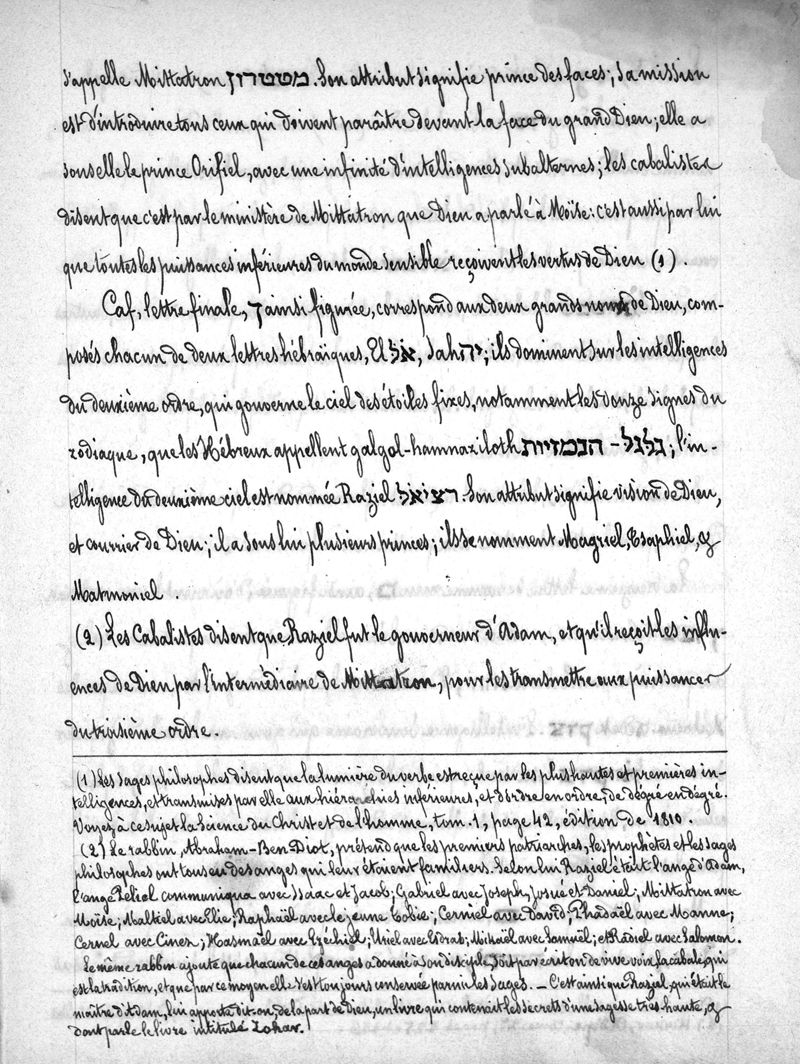 s'appelle Mittatron מטטרון. Son attribut signifie prince des faces; sa mission
est d'introduire tous ceux qui doivent paraître devant la face du grand Dieu; elle a
sous elle le prince Orifiel, avec une infinité d'intelligences subalternes; les cabalistes
disent que c'est par le ministère de Mittatron que Dieu a parlé à Moïse: c'est aussi par lui
que toutes les puissances inférieures du monde sensible reçoivent les vertus de Dieu (1).
Caf, lettre finale, ך ainsi figurée, correspond aux deux grands noms de Dieu, com-
posés chacun de deux lettres hébraïques, El אל, Jah יה; ils dominent sur les intelligences
du deuxième ordre, qui gouverne le ciel des étoiles fixes, notamment les douze signes du
zodiaque, que les Hébreux appellent galgol-hamnaziloth גלגל-הנמזיות; l'in-
telligence du deuxième ciel est nommée Raziel רציאל. Son attribut signifie vision de Dieu,
et courrier de Dieu; il a sous lui plusieurs princes; ils se nomment Magriel, Tsaphiel, &
Matmoniel.
(2) Les Cabalistes disent que Raziel fut le gouverneur d'Adam, et qu'il reçoit les influ-
ences de Dieu par l'intermédiaire de Mittatron, pour les transmettre aux puissances
du troisième ordre.
(1) Les sages philosophes disent que la lumière du verbe est reçue par les plus hautes et premières in-
telligences, et transmises par elle aux hiérarchies inférieures, et d'ordre en ordre, de dégré en dégré.
Voyez à ce sujet la Science du Christ et de l'homme, tom. 1, page 42, édition de 1810.
(2) Le rabbin, Abraham-Ben-Diot, prétend que les premiers patriarches, les prophètes et les sages
philosophes ont tous eu des anges qui leur étaient familiers. Selon lui Raziel était l'ange d'Adam,
l'ange Péliel communiqua avec Isaac et Jacob; Gabriel avec Joseph, Josué et Daniel; Mittatron avec
Moïse; Malthiel avec Elie; Raphaël avec le jeune Tobie; Cerniel avec David; Phadaël avec Manne;
Cernel avec Cinez; Hasmaël avec Ezéchiel; Uriel avec Esdras; Michaël avec Samuël; et Raziel avec Salomon.
Le même rabbin ajoute que chacun de ces anges a donné à son disciple, soit par écrit ou de vive voix, la cabale, qui
est la tradition, et que par ce moyen elle s'est toujours conservée parmi les sages. — C'est ainsi que Raziel, qui était le
maître d'Adam, lui apporta dit-on, de la part de Dieu, un livre qui contenait les secrets d'une sagesse très haute, &
dont parle le livre intitulé Zohar.